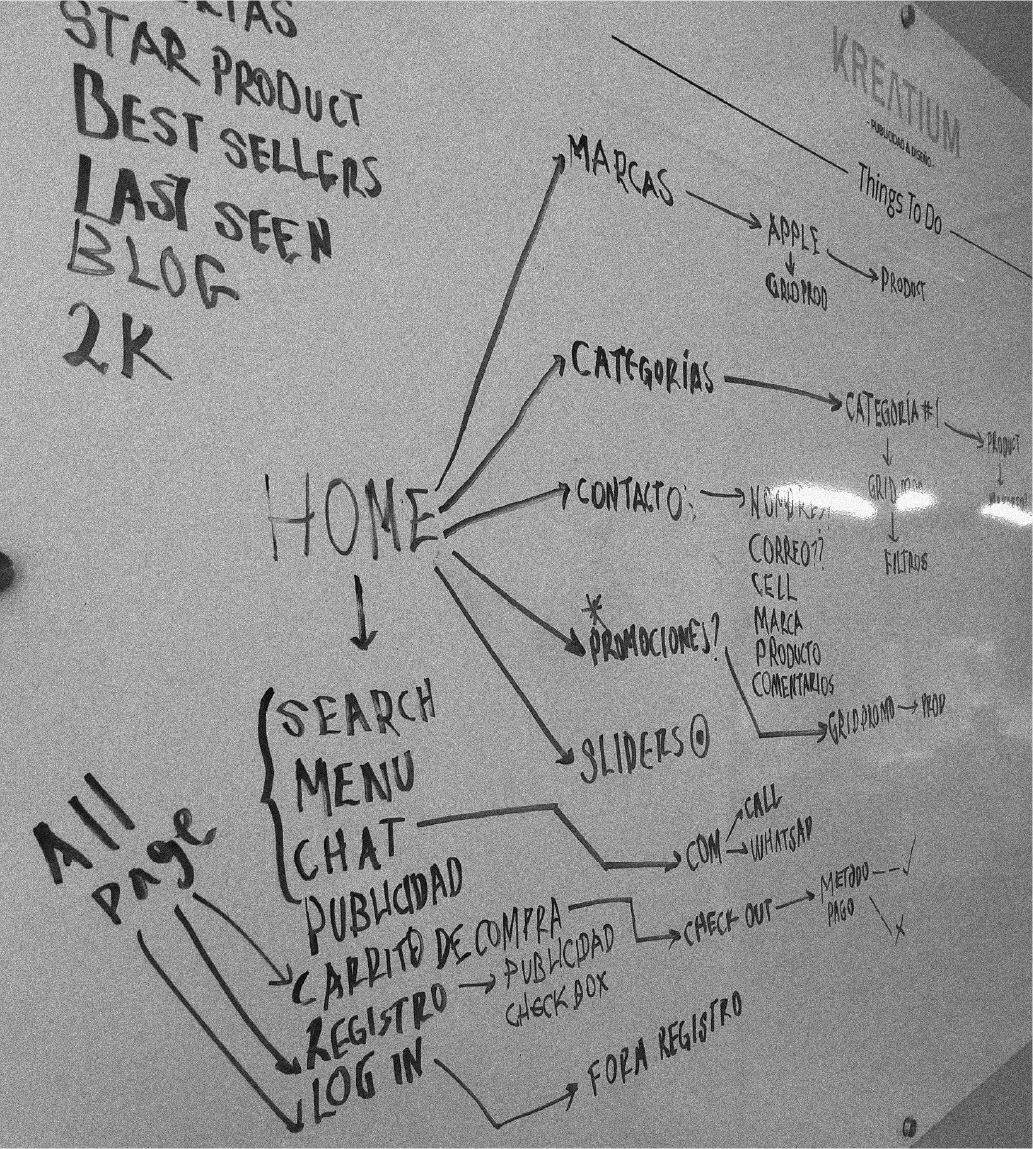 STAR PRODUCT
BEST SELLERS
LAST SEEN
BLOG
2K
KREATIUM
- PUBLICIDAD & DISEÑO -
Things To Do
MARCAS
APPLE
GRID PROD
PRODUCT
CATEGORÍAS
CATEGORÍA #1
PRODUCT
GRID
FILTROS
HOME
CONTACTO:
NOMBRE?
CORREO??
CELL
MARCA
PRODUCTO
COMENTARIOS
*
PROMOCIONES?
GRID PROMO
PROD
SLIDERS
SEARCH
MENU
CHAT
PUBLICIDAD
COM
CALL
WHATSAP
All
page
CARRITO DE COMPRA
CHECK OUT
METODO
PAGO
X
REGISTRO
PUBLICIDAD
CHECK BOX
LOG IN
FORM REGISTRO